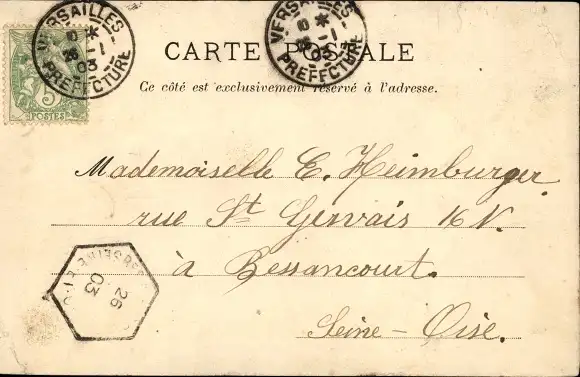 VERSAILLES
PREFECTURE
03
VERSAILLES
PREFECTURE
03
5
POSTES
CARTE POSTALE
Ce côté est exclusivement réservé à l'adresse.
Mademoiselle E. Heimburger
rue St Gervais 16 N.
à Bessancourt.
Seine-Oise.
26
03